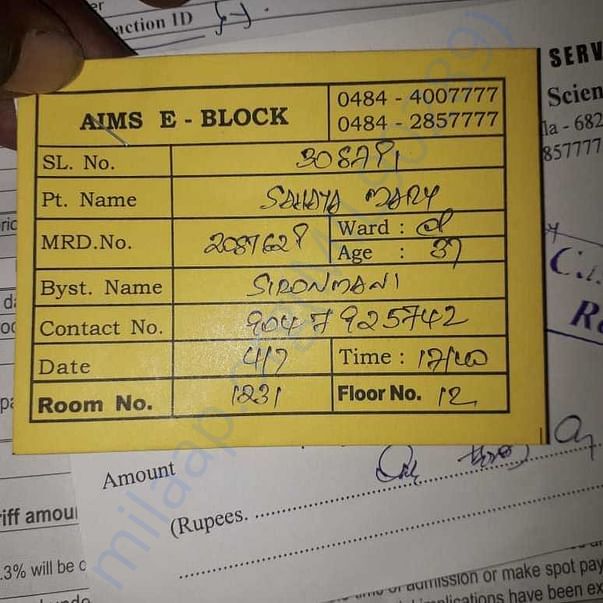 action ID
SERV
Scien
la - 682
857777
AIMS E - BLOCK
0484 - 4007777
0484 - 2857777
SL. No.
Pt. Name SAHAYA MARY
MRD.No. 2087628
Ward :
Age : 37
Byst. Name SIRONMANI
Contact No. 9047925742
Date 4/7
Time : 17/40
Room No. 1231
Floor No. 12
Amount
(Rupees.
riff amou
.3% will be c
admission or make spot pay
plications have been ex
milaap